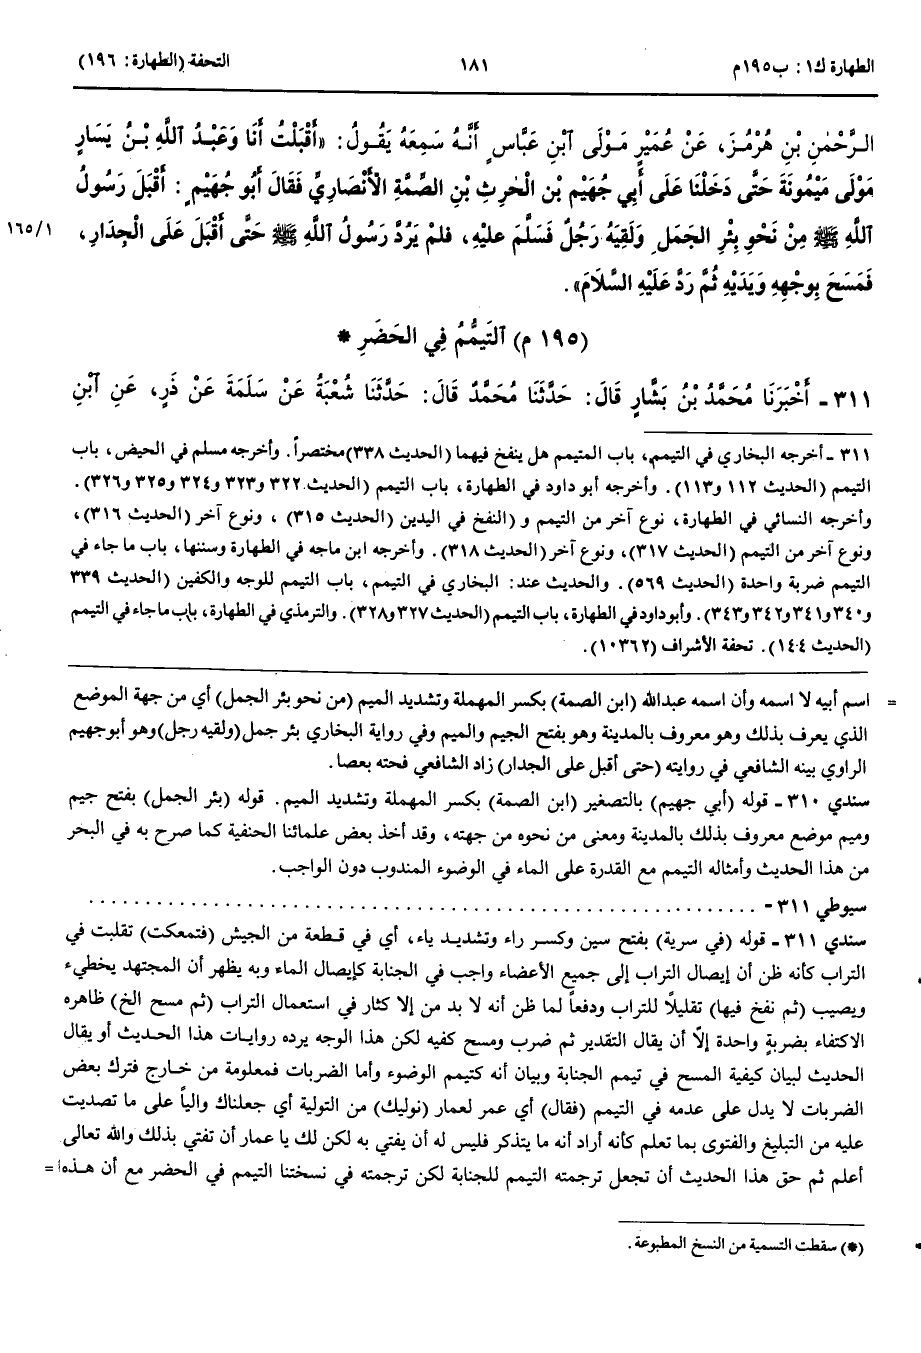 الطهارة ك١: ب١٩٥م ١٨١ التحفة (الطهارة: ١٩٦)
الـرَّحْمٰنِ بْنِ هُرْمُـزَ، عَنْ عُمَيْرٍ مَـوْلَى ٱبْنِ عَبَّاسٍ أَنَّـهُ سَمِعَهُ يَقُـولُ: «أَقْبَلْتُ أَنَا وَعَبْـدُ ٱللَّهِ بْـنُ يَسَارٍ
مَوْلَى مَيْمُونَةَ حَتَّى دَخَلْنَا عَلَى أَبِي جُهَيْمِ بْنِ الْحٰرِثِ بْنِ الصِّمَّةِ الْأَنْصَارِيِّ فَقَالَ أَبُو جُهَيْمٍ: أَقْبَلَ رَسُولُ
ٱللَّهِ ﷺ مِنْ نَحْوِ بِئْرِ الْجَمَلِ وَلَقِيَهُ رَجُلٌ فَسَلَّمَ عليْهِ، فلمْ يَرُدَّ رَسُولُ ٱللَّهِ ﷺ حَتَّى أَقْبَلَ عَلَى الْجِدَارِ، ١٦٥/١
فَمَسَحَ بِوَجْهِهِ وَيَدَيْهِ ثُمَّ رَدَّ عَلَيْهِ السَّلَامَ».
(١٩٥ م) ٱلتَيمُّمُ فِي الحَضَرِ *
٣١١ ـ أَخْبَرَنَا مُحَمَّدُ بْنُ بَشَّارٍ قَالَ: حَدَّثَنَا مُحَمَّدٌ قَالَ: حَدَّثَنَا شُعْبَةُ عَنْ سَلَمَةَ عَنْ ذَرٍّ، عَنِ ٱبْنِ
٣١١ ـ أخرجه البخاري في التيمم، باب المتيمم هل ينفخ فيهما (الحديث ٣٣٨) مختصراً. وأخرجه مسلم في الحيض، باب
التيمم (الحديث ١١٢ و١١٣). وأخرجه أبو داود في الطهارة، باب التيمم (الحديث ٣٢٢ و٣٢٣ و٣٢٤ و٣٢٥ و٣٢٦).
وأخرجه النسائي في الطهارة، نوع آخر من التيمم و (النفخ في اليدين (الحديث ٣١٥) ، ونوع آخر (الحديث ٣١٦)،
ونوع آخر من التيمم (الحديث ٣١٧)، ونوع آخر (الحديث ٣١٨). وأخرجه ابن ماجه في الطهارة وسننها، باب ما جاء في
التيمم ضربة واحدة (الحديث ٥٦٩). والحديث عند: البخاري في التيمم، باب التيمم للوجه والكفين (الحديث ٣٣٩
و٣٤٠ و٣٤١ و٣٤٢ و٣٤٣). وأبو داود في الطهارة، باب التيمم (الحديث ٣٢٧ و٣٢٨). والترمذي في الطهارة، باب ما جاء في التيمم
(الحديث ١٤٤). تحفة الأشراف (١٠٣٦٢).
= اسم أبيه لا اسمه وأن اسمه عبدالله (ابن الصمة) بكسر المهملة وتشديد الميم (من نحو بئر الجمل) أي من جهة الموضع
الذي يعرف بذلك وهو معروف بالمدينة وهو بفتح الجيم والميم وفي رواية البخاري بئر جمل (ولقيه رجل) وهو أبوجهيم
الراوي بينه الشافعي في روايته (حتى أقبل على الجدار) زاد الشافعي فحته بعصا.
سندي ٣١٠ ـ قوله (أبي جهيم) بالتصغير (ابن الصمة) بكسر المهملة وتشديد الميم. قوله (بئر الجمل) بفتح جيم
وميم موضع معروف بذلك بالمدينة ومعنى من نحوه من جهته، وقد أخذ بعض علمائنا الحنفية كما صرح به في البحر
من هذا الحديث وأمثاله التيمم مع القدرة على الماء في الوضوء المندوب دون الواجب.
سيوطي ٣١١ - . . . . . . . . . . . . . . . . . . . .
سندي ٣١١ ـ قوله (في سرية) بفتح سين وكسر راء وتشديد ياء، أي في قطعة من الجيش (فتمعكت) تقلبت في
التراب كأنه ظن أن إيصال التراب إلى جميع الأعضاء واجب في الجنابة كإيصال الماء وبه يظهر أن المجتهد يخطيء
ويصيب (ثم نفخ فيها) تقليلاً للتراب ودفعاً لما ظن أنه لا بد من إلا كثار في استعمال التراب (ثم مسح الخ) ظاهره
الاكتفاء بضربةٍ واحدة إلاّ أن يقال التقدير ثم ضرب ومسح كفيه لكن هذا الوجه يرده روايات هذا الحديث أو يقال
الحديث لبيان كيفية المسح في تيمم الجنابة وبيان أنه كتيمم الوضوء وأما الضربات فمعلومة من خارج فترك بعض
الضربات لا يدل على عدمه في التيمم (فقال) أي عمر لعمار (نوليك) من التولية أي جعلناك والياً على ما تصديت
عليه من التبليغ والفتوى بما تعلم كأنه أراد أنه ما يتذكر فليس له أن يفتي به لكن لك يا عمار أن تفتي بذلك والله تعالى
أعلم ثم حق هذا الحديث أن تجعل ترجمته التيمم للجنابة لكن ترجمته في نسختنا التيمم في الحضر مع أن هذه =
(*) سقطت التسمية من النسخ المطبوعة.